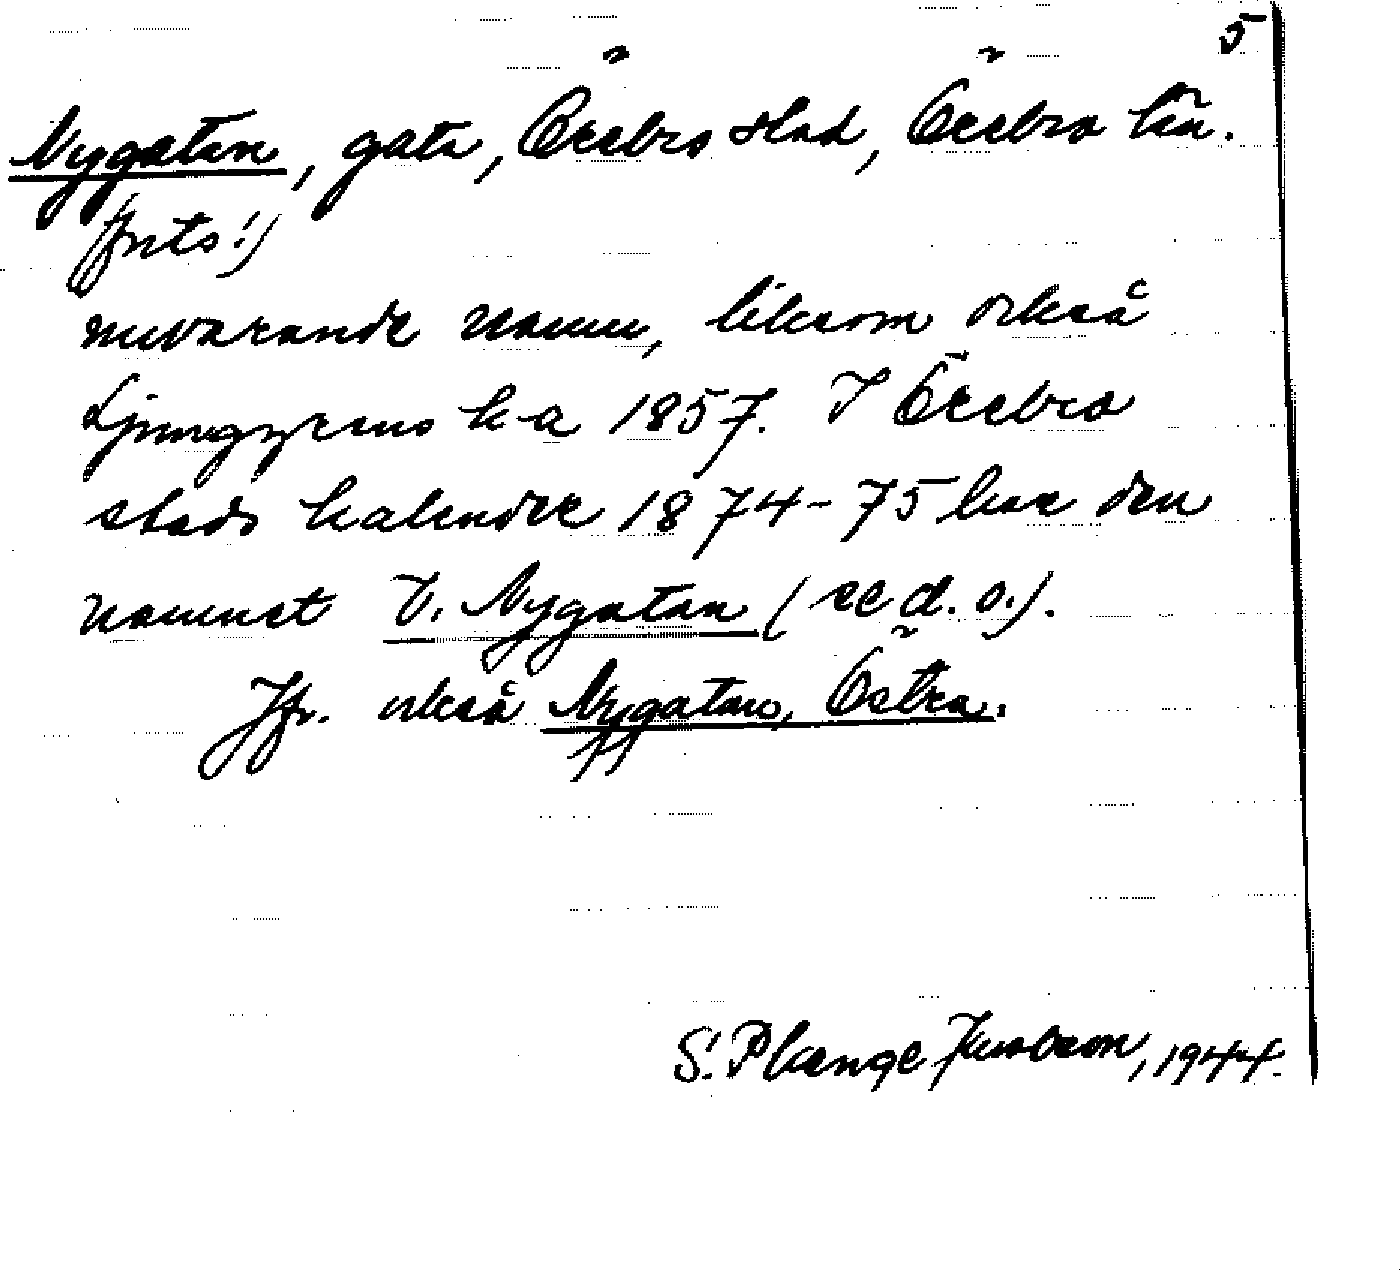 5
Nygatan, gata, Örebro stad, Örebro län.
(forts.)
nuvarande namn, liksom också
Ljunggrens k-a 1857. I Örebro
stads kalender 1874-75 har den
namnet V. Nygatan (se d. o.).
Jfr. också Nygatan, Östra.
S. Plange Jacobson, 1944.